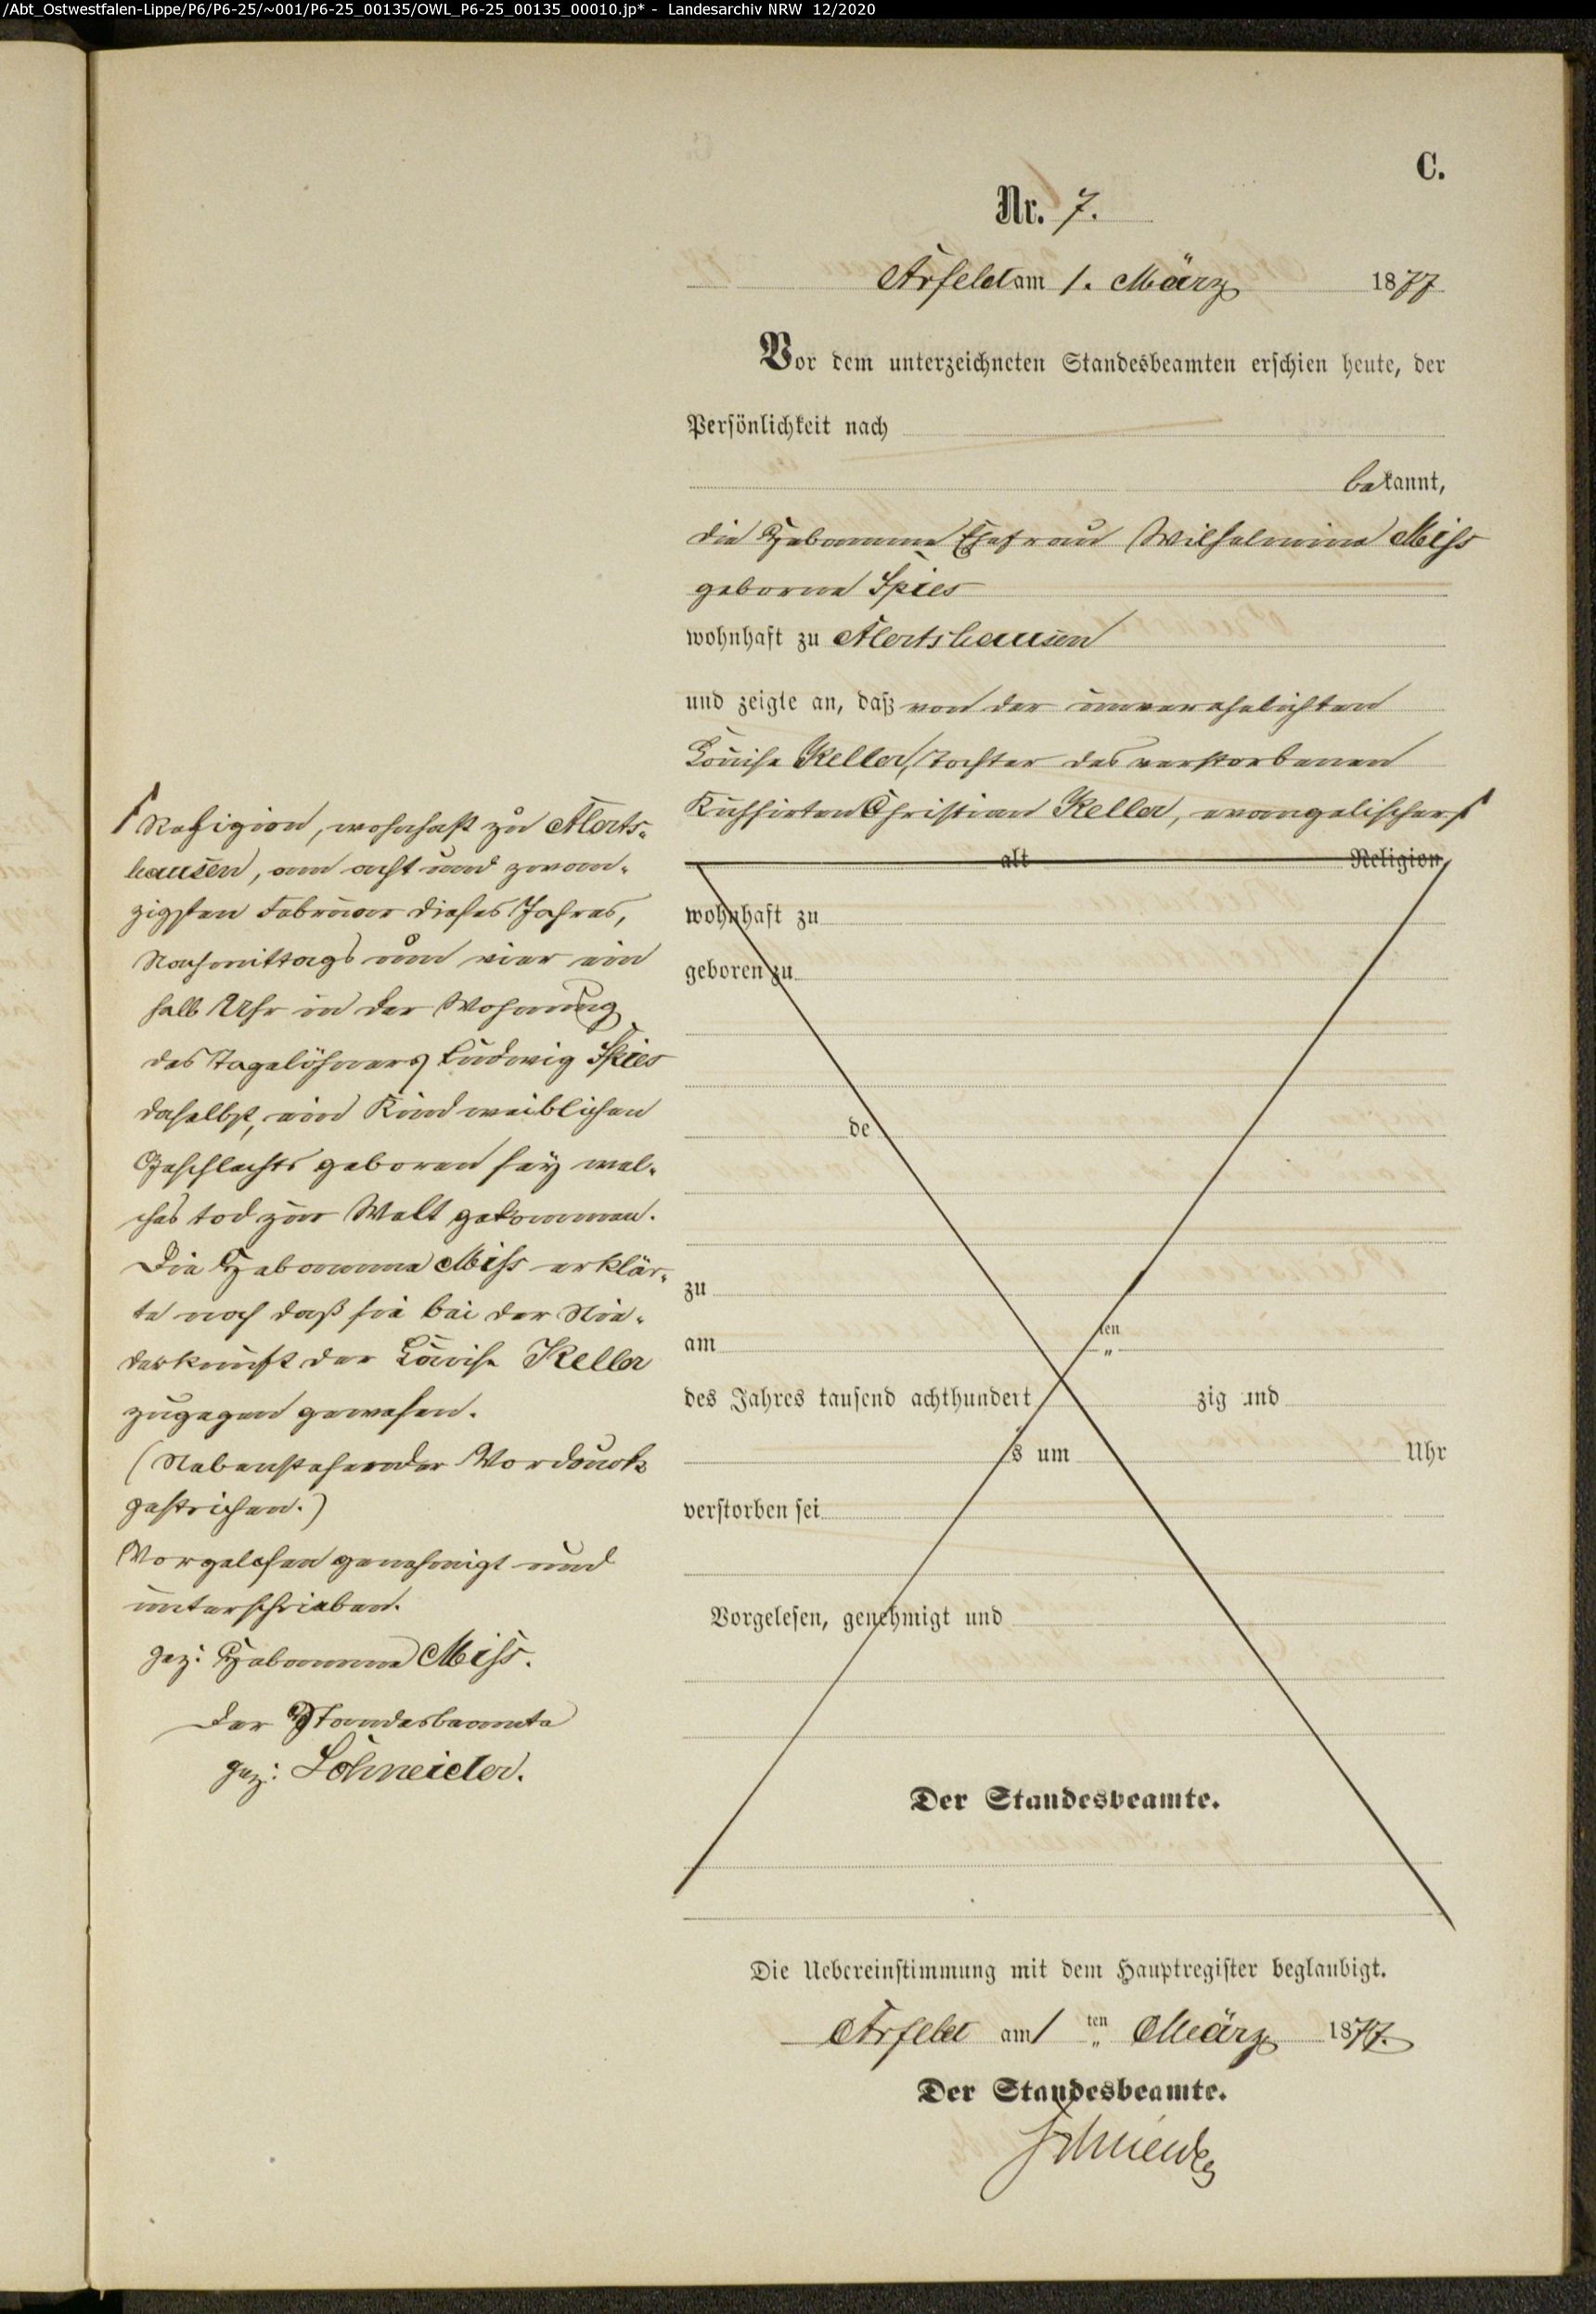 /Abt_Ostwestfalen-Lippe/P6/P6-25/~001/P6-25_00135/OWL_P6-25_00135_00010.jp* - Landesarchiv NRW 12/2020
C.
Nr. 7.
Arfeld am 1. März 1877
Vor dem unterzeichneten Standesbeamten erschien heute, der
Persönlichkeit nach
bekannt,
die Hebamme Ehefrau Wilhelmine Miss
geborne Spies
wohnhaft zu Alertshausen
und zeigte an, daß von der unverehelichten
Louise Keller, Tochter des verstorbenen
Kuhhirten Christian Keller, evangelischer
alt Religion
wohnhaft zu
geboren zu
de
zu
am ten
des Jahres tausend achthundert zig und
s um Uhr
verstorben sei
Vorgelesen, genehmigt und
Der Standesbeamte.
Religion, wohnhaft zu Alerts-
hausen, am acht und zwan-
zigsten Februar dieses Jahres,
Nachmittags um vier ein
halb Uhr in der Wohnung
des Tagelöhners Ludwig Spies
daselbst, ein Kind weiblichen
Geschlechts geboren sey wel-
ches tod zur Welt gekommen.
Die Hebamme Miss erklär-
te noch daß sie bei der Nie-
derkunft der Louise Keller
zugegen gewesen.
(Nebenstehender Vordruck
gestrichen.)
Vorgelesen genehmigt und
unterschrieben.
gez: Hebamme Miss.
Der Standesbeamte
gez: Schneider.
Die Uebereinstimmung mit dem Hauptregister beglaubigt.
Arfeld am 1 ten März 1877.
Der Standesbeamte.
Schneider